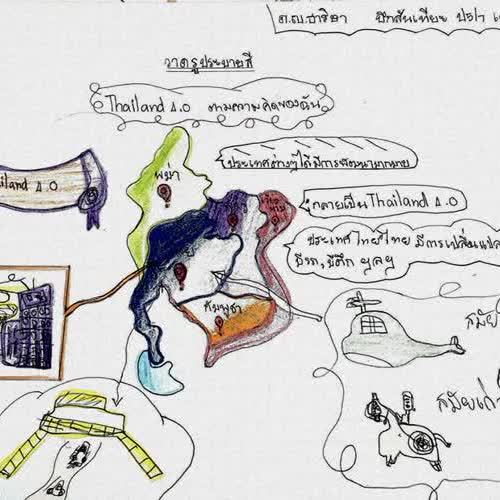 ด.ญ.ชาริษา ปักสันเทียะ ป5/1
วาดรูประบายสี
Thailand 4.0 ตามความคิดของฉัน
พม่า
ประเทศต่างๆได้มีการพัฒนามากมาย
iland 4.0
เวียดนาม
กลายเป็นThailand 4.0
ประเทศไทยไทย มีการเปลี่ยนแปล
มีรถ,มีตึก ฯลฯ
กัมพูชา
สมัย
สมัยเก่า